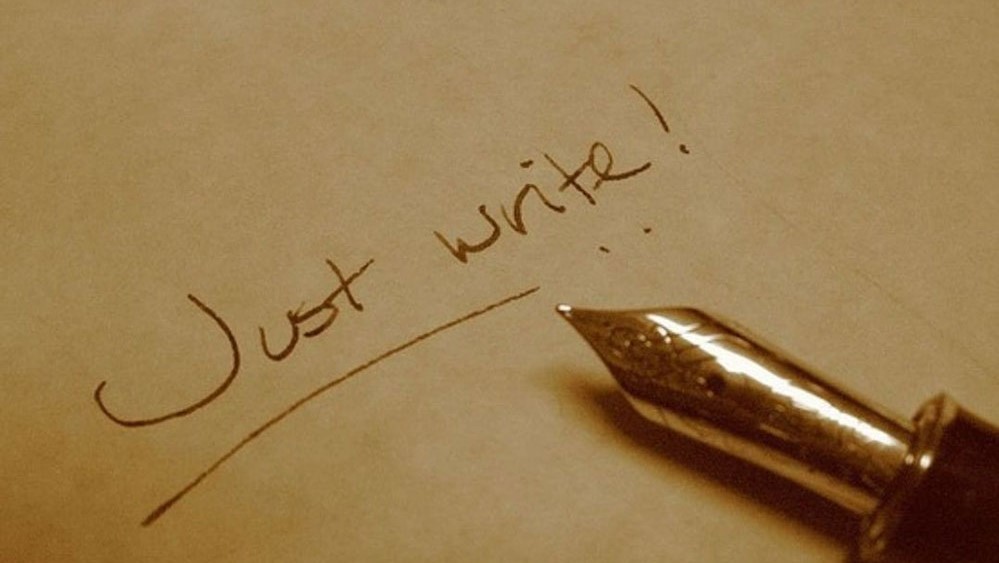 Just write!